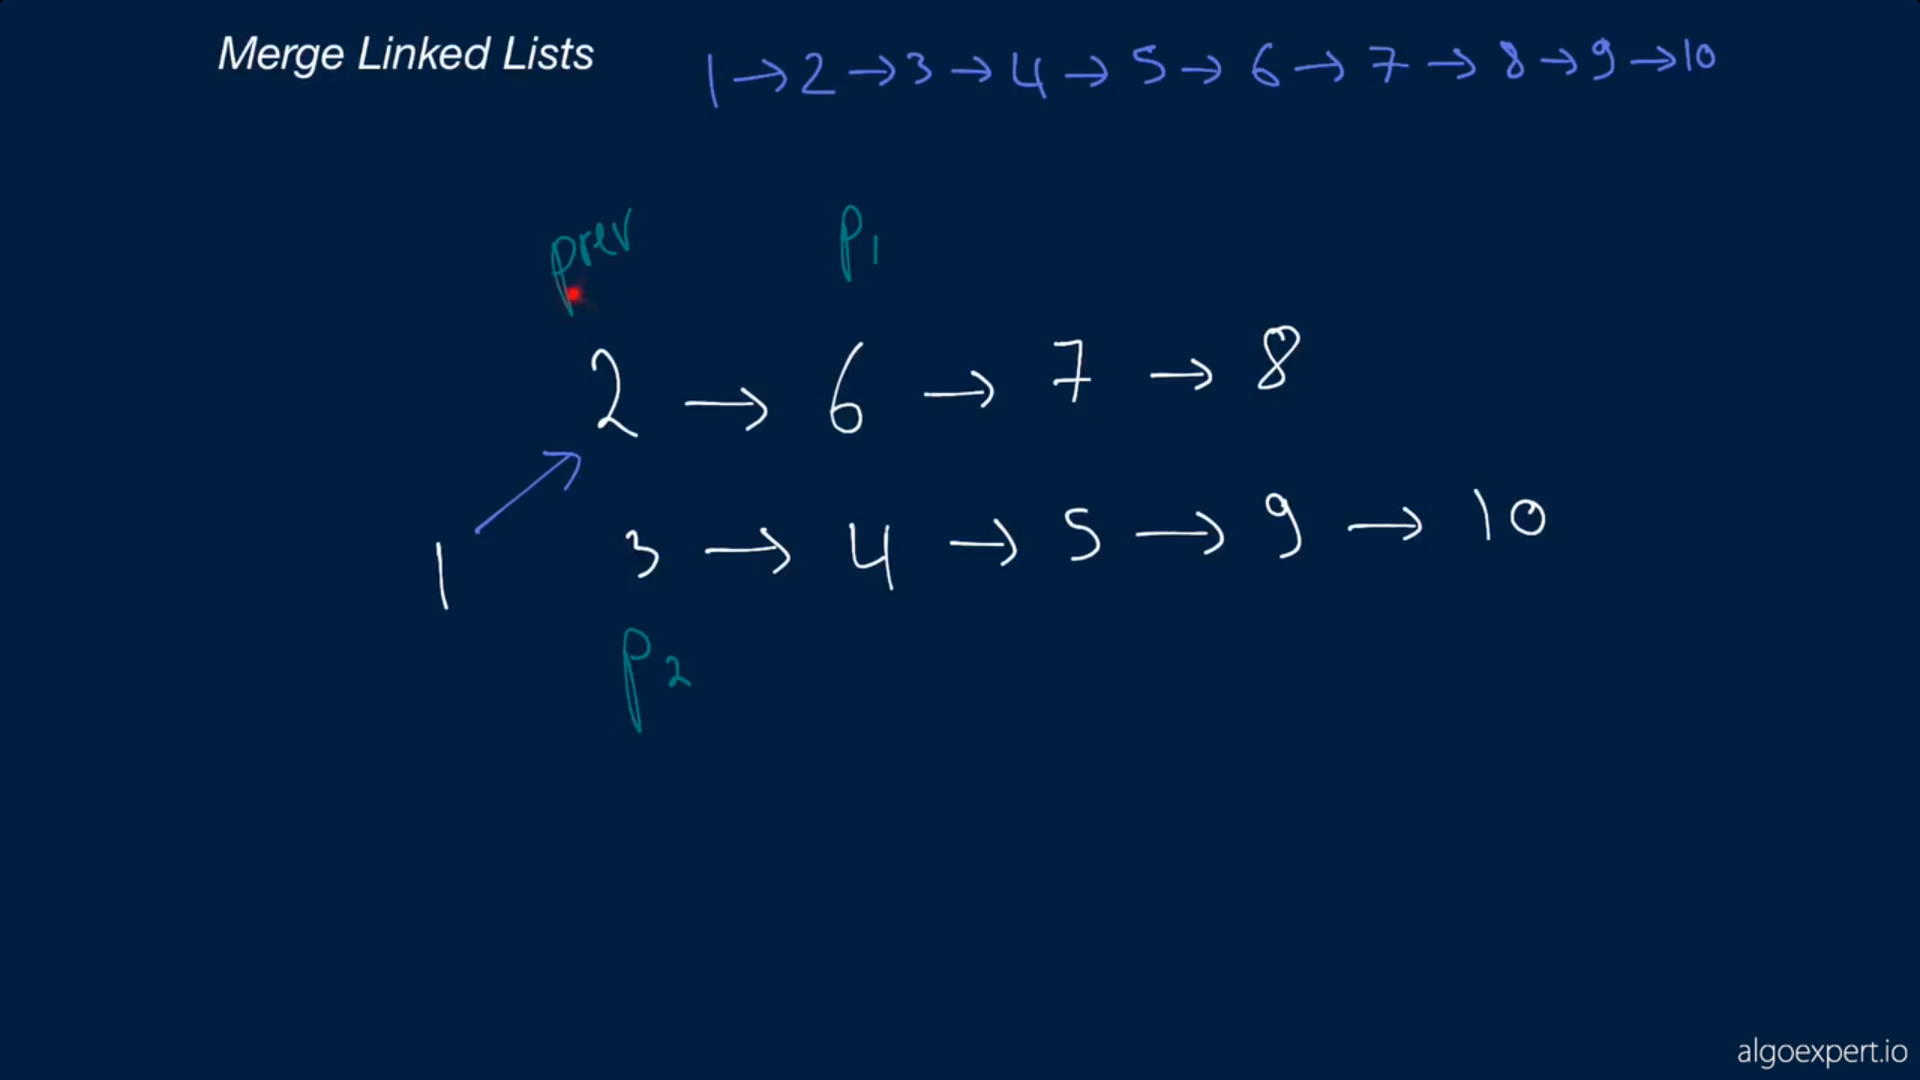 Merge Linked Lists
1 → 2 → 3 → 4 → 5 → 6 → 7 → 8 → 9 → 10
prev P1
2 → 6 → 7 → 8
3 → 4 → 5 → 9 → 10
1
P2
algoexpert.io